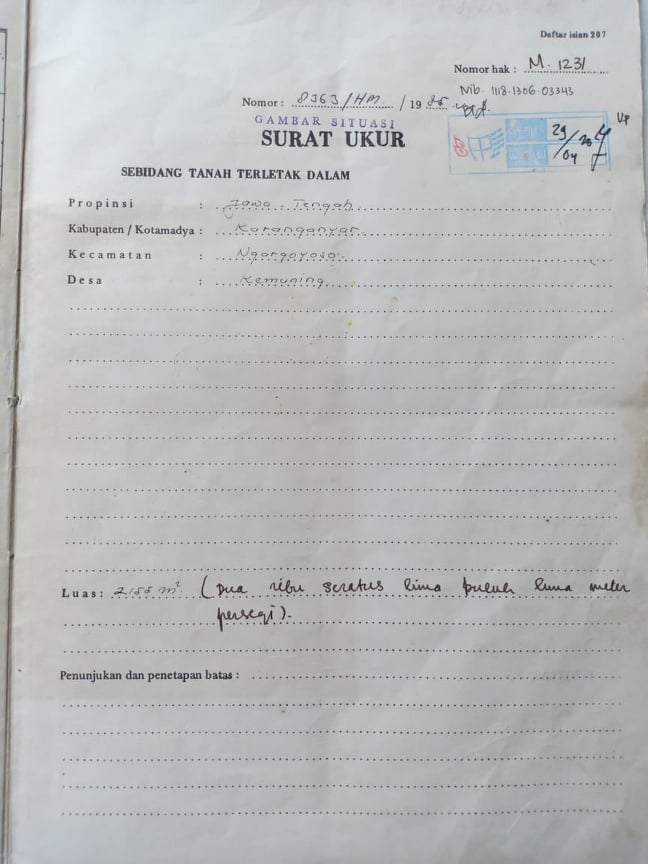 Daftar isian 207
Nomor hak : M. 1231
Nib. 1118.1306.03343
Nomor : 8363/HM. / 19 85
GAMBAR SITUASI
SURAT UKUR
29/04
SEBIDANG TANAH TERLETAK DALAM
Propinsi : Jawa-Tengah
Kabupaten / Kotamadya : Karanganyar
Kecamatan : Ngargoyoso
Desa : Kemuning
Luas: 2155 m² (Dua ribu seratus lima puluh lima meter
persegi).
Penunjukan dan penetapan batas :